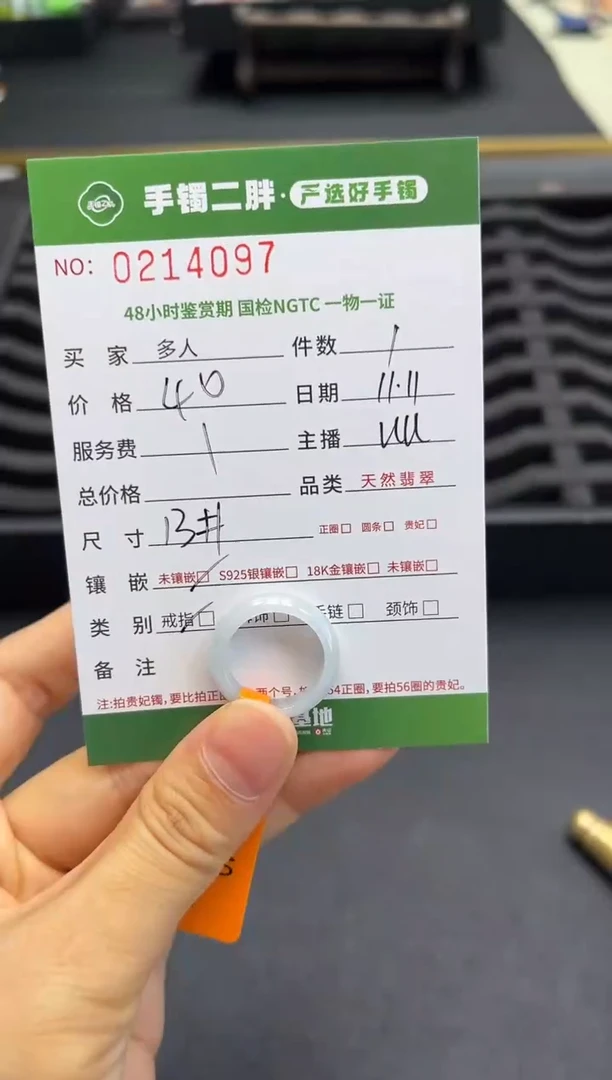 手镯二胖·严选好手镯
NO: 0214097
48小时鉴赏期 国检NGTC 一物一证
买 家 多人 件数 1
价 格 40 日期 11.11
服务费 主播
总价格 品类 天然翡翠
尺 寸 13# 正圈□ 圆条□ 贵妃□
镶 嵌 未镶嵌□ S925银镶嵌□ 18K金镶嵌□ 未镶嵌□
类 别 戒指□ 饰□ 链□ 颈饰□
备 注
注:拍贵妃镯,要比拍正 两个号, 54正圈,要拍56圈的贵妃。
地